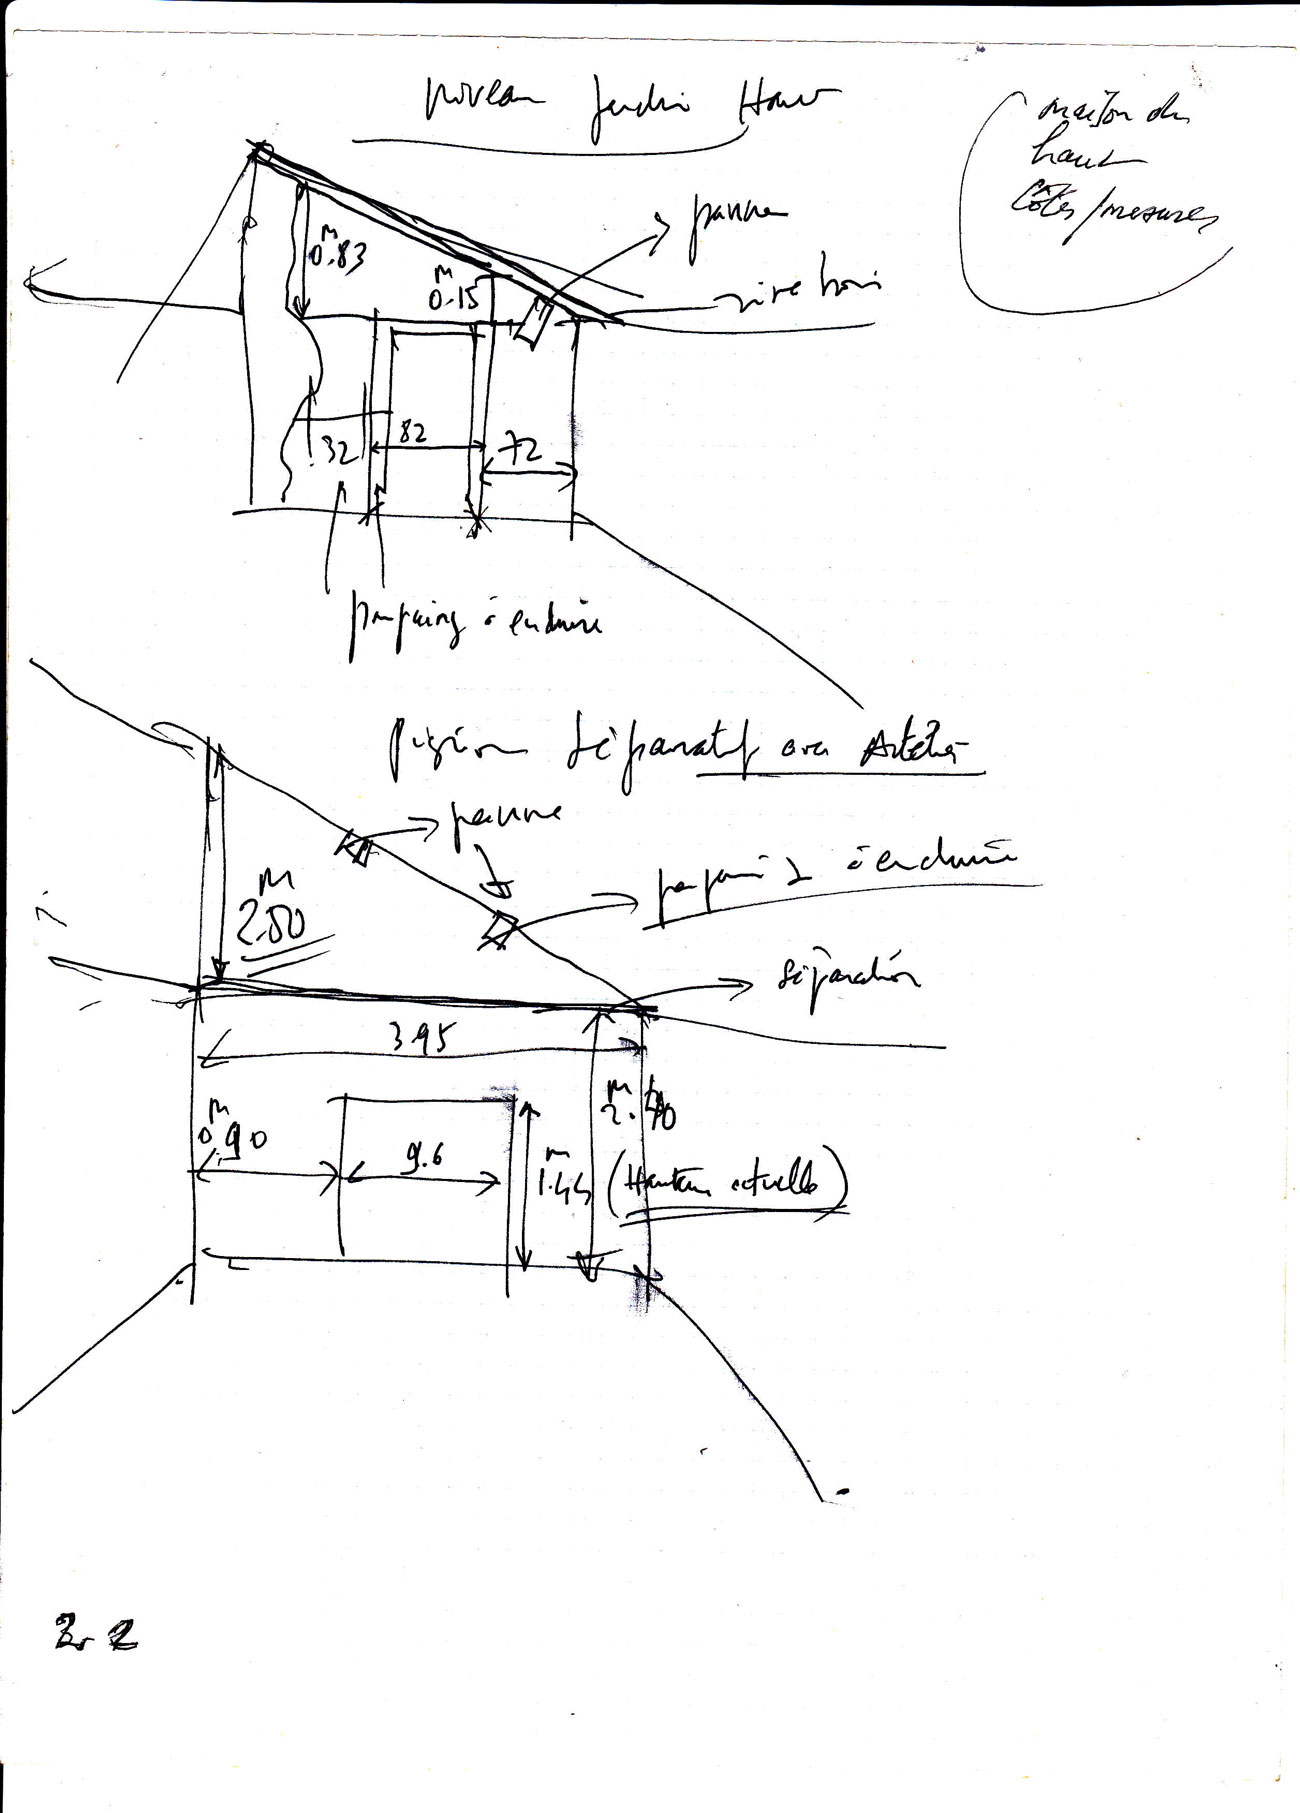 niveau jardin Haut
maison du
haut
côtés/mesures
panne
rive bois
M
0.83
M
0.15
32
82
72
parpaing à enduire
pignon séparatif avec Atelier
panne
parpaing à enduire
M
2.80
séparation
395
M
0.90
9.6
m
1.44
M
2.40
(Hauteur actuelle)
2